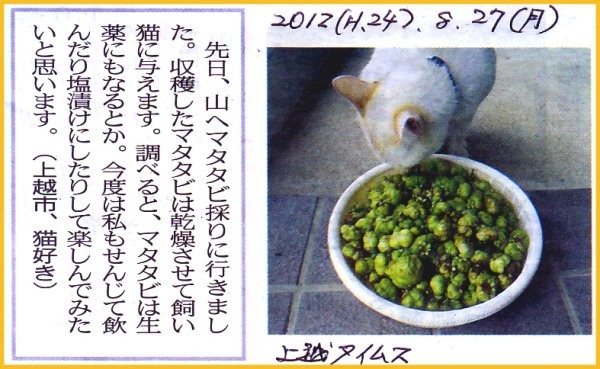 先日、山へマタタビ採りに行きまし
た。収穫したマタタビは乾燥させて飼い
猫に与えます。調べると、マタタビは生
薬にもなるとか。今度は私もせんじて飲
んだり塩漬けにしたりして楽しんでみた
いと思います。（上越市、猫好き）
2012(H.24).8.27(月)
上越タイムス